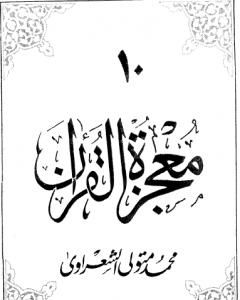 ١٠
معجزة القرآن
محمد متولى الشعراوى